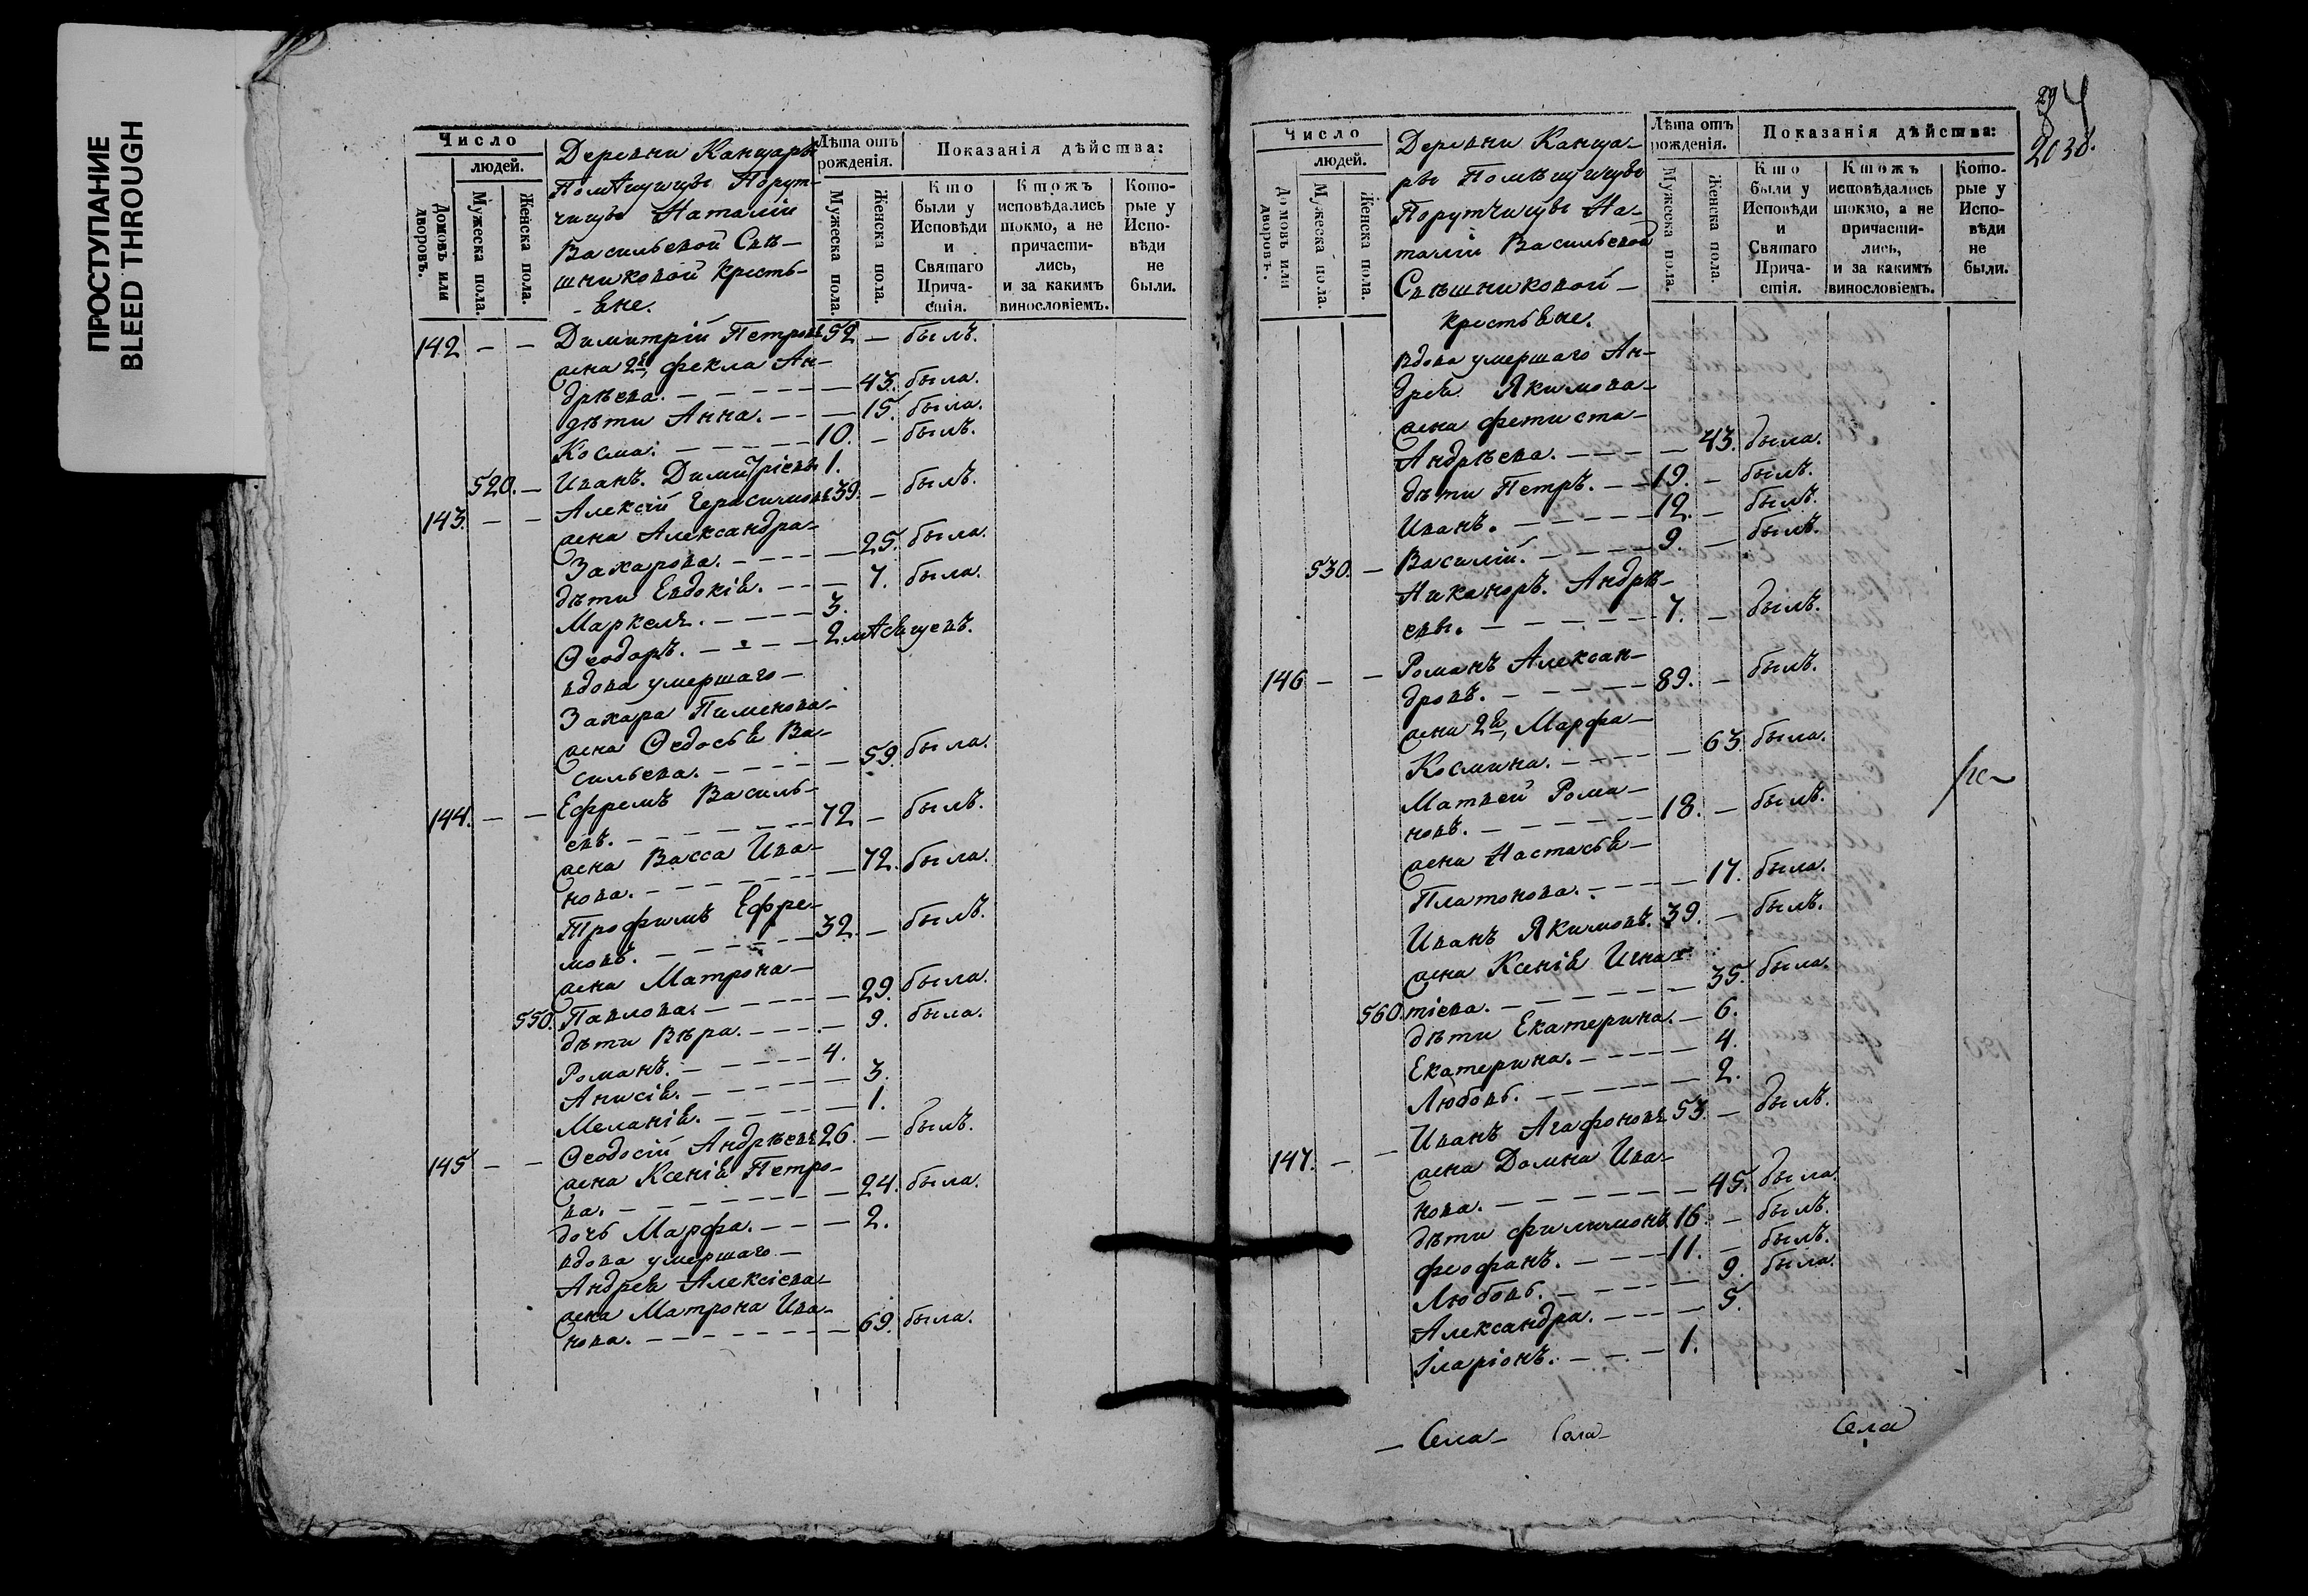 ПРОСТУПАНИЕ
BLEED THROUGH
Число
людей.
Домовъ или дворовъ.
Мужеска пола.
Женска пола.
Деревни Канцары
Помѣщицы Порут-
чицы Наталіи
Васильевой Свѣ-
шниковой крестья-
ене.
Лѣта отъ рожденія.
Мужеска пола.
Женска пола.
Показанія дѣйства:
Кто были у Исповѣди и Святаго Прича-стія.
Ктожъ исповѣдались токмо, а не причасти-лись, и за какимъ винословіемъ.
Кото-рые у Испо-вѣди не были.
142 – – Димитрій Петровъ 52 – былъ.
жена 2я, Фекла Ан-
дрѣева. – 43. была.
дѣти Анна. – 15. была.
Косма. 10. – былъ.
520. – Иванъ Димитріевъ 1.
143. – – Алексій Герасимовъ 39. – былъ.
жена Александра
Захарова. – 25. была.
дѣти Евдокія. – 7. была.
Маркелъ. 3.
Ѳеодоръ. 2 мѣсяцевъ.
вдова умершаго
Захара Пименова
жена Ѳедосья Ва-
сильева. – 59. была.
144. – – Ефремъ Василь-
евъ. 72 – былъ.
жена Васса Ива-
нова. – 72. была.
Трофимъ Ефре-
мовъ. 32. – былъ.
жена Матрона
550. Павлова. – 29. была.
дѣти Вѣра. – 9. была.
Романъ. 4.
Анисія. – 3.
Меланія. – 1.
145 – – Ѳеодосій Андрѣевъ 26. – былъ.
жена Ксенія Петро-
ва. – 24. была.
дочь Марфа. – 2.
вдова умершаго
Андрея Алексіева
жена Матрона Ива-
нова. – 69. была.
2038.
Число
людей.
Домовъ или дворовъ.
Мужеска пола.
Женска пола.
Деревни Канца-
ры Помѣщицы
Порутчицы На-
таліи Васильевой
Свѣшниковой
крестьяне.
Лѣта отъ рожденія.
Мужеска пола.
Женска пола.
Показанія дѣйства:
Кто были у Исповѣди и Святаго Прича-стія.
Ктожъ исповѣдались токмо, а не причасти-лись, и за какимъ винословіемъ.
Кото-рые у Испо-вѣди не были.
вдова умершаго Ан-
дрея Якимова
жена Фетиста
Андрѣева. – 43. была.
дѣти Петръ. 19. – былъ.
Иванъ. 12. – былъ.
530. – Василій. 9. – былъ.
Никаноръ. Андрѣ-
евы. 7. – былъ.
146 – – Романъ Алексан-
дровъ. 89. – былъ.
жена 2я, Марфа
Космина. – 63 была.
Матвей Рома-
новъ. 18. – былъ.
жена Настасья
Платонова. – 17. была.
Иванъ Якимовъ. 39. – былъ.
жена Ксенія Игна-
560. тіева. – 35. была.
дѣти Екатерина. – 6.
Екатерина. – 4.
Любовь. – 2.
147. – – Иванъ Агафоновъ 53. – былъ.
жена Домна Ива-
нова. – 45. была.
дѣти Филимонъ 16. – былъ.
Феофанъ. 11. – былъ.
Любовь. – 9. была.
Александра. – 5.
Іларіонъ. 1.
Села Села Села